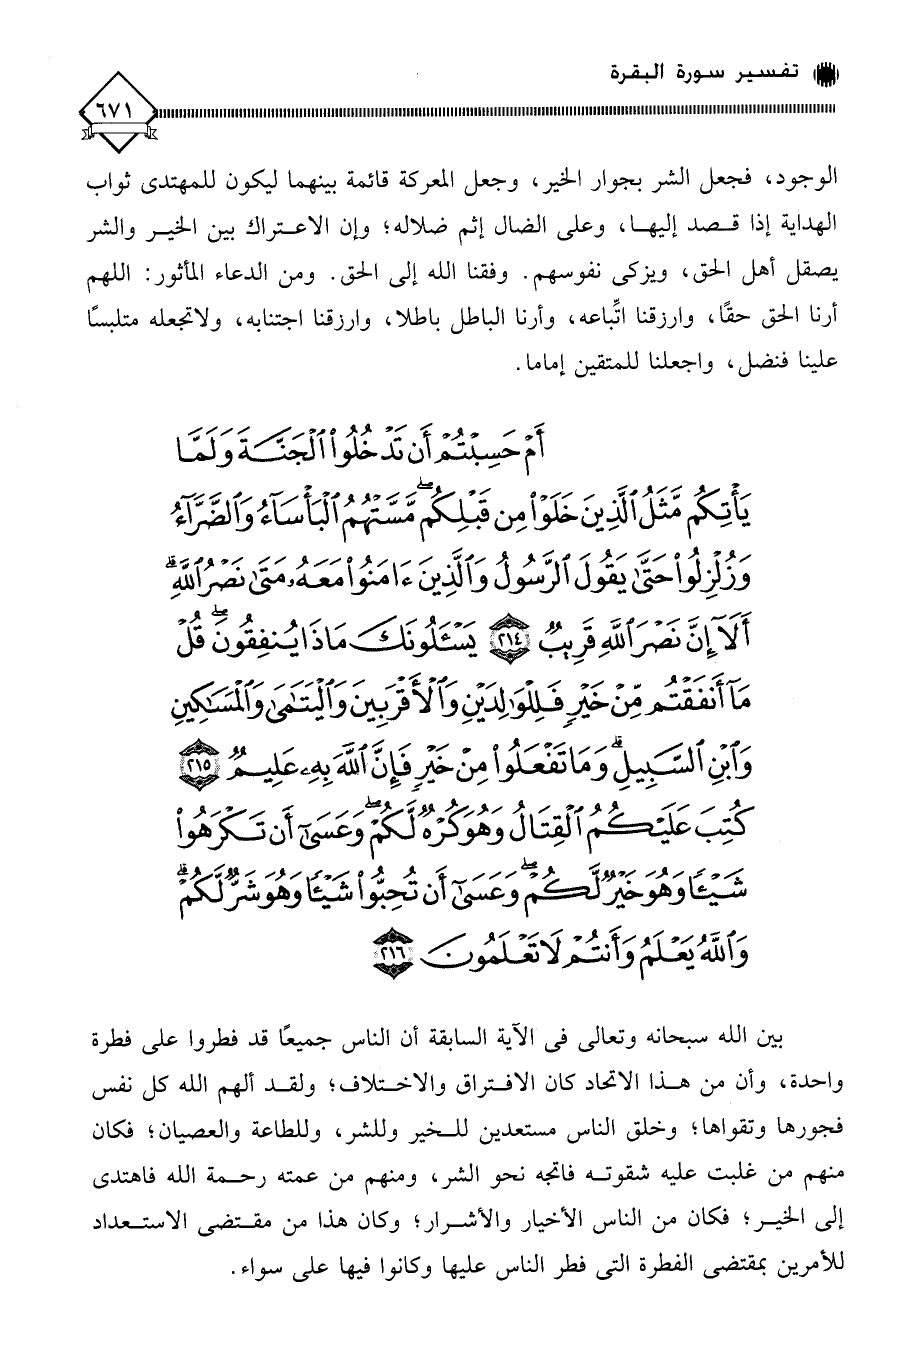 تفسير سورة البقرة
٦٧١
الوجود، فجعل الشر بجوار الخير، وجعل المعركة قائمة بينهما ليكون للمهتدى ثواب
الهداية إذا قصد إليها، وعلى الضال إثم ضلاله؛ وإن الاعتراك بين الخير والشر
يصقل أهل الحق، ويزكى نفوسهم. وفقنا الله إلى الحق. ومن الدعاء المأثور: اللهم
أرنا الحق حقًا، وارزقنا اتِّباعه، وأرنا الباطل باطلا، وارزقنا اجتنابه، ولاتجعله متلبسًا
علينا فنضل، واجعلنا للمتقين إماما.
أَمْ حَسِبْتُمْ أَن تَدْخُلُوا۟ ٱلْجَنَّةَ وَلَمَّا
يَأْتِكُم مَّثَلُ ٱلَّذِينَ خَلَوْا۟ مِن قَبْلِكُم ۖ مَّسَّتْهُمُ ٱلْبَأْسَآءُ وَٱلضَّرَّآءُ
وَزُلْزِلُوا۟ حَتَّىٰ يَقُولَ ٱلرَّسُولُ وَٱلَّذِينَ ءَامَنُوا۟ مَعَهُۥ مَتَىٰ نَصْرُ ٱللَّهِ ۗ
أَلَآ إِنَّ نَصْرَ ٱللَّهِ قَرِيبٌ ٢١٤ يَسْـَٔلُونَكَ مَاذَا يُنفِقُونَ ۖ قُلْ
مَآ أَنفَقْتُم مِّنْ خَيْرٍ فَلِلْوَٰلِدَيْنِ وَٱلْأَقْرَبِينَ وَٱلْيَتَٰمَىٰ وَٱلْمَسَٰكِينِ
وَٱبْنِ ٱلسَّبِيلِ ۗ وَمَا تَفْعَلُوا۟ مِنْ خَيْرٍ فَإِنَّ ٱللَّهَ بِهِۦ عَلِيمٌ ٢١٥
كُتِبَ عَلَيْكُمُ ٱلْقِتَالُ وَهُوَ كُرْهٌ لَّكُمْ ۖ وَعَسَىٰٓ أَن تَكْرَهُوا۟
شَيْـًٔا وَهُوَ خَيْرٌ لَّكُمْ ۖ وَعَسَىٰٓ أَن تُحِبُّوا۟ شَيْـًٔا وَهُوَ شَرٌّ لَّكُمْ ۗ
وَٱللَّهُ يَعْلَمُ وَأَنتُمْ لَا تَعْلَمُونَ ٢١٦
بين الله سبحانه وتعالى فى الآية السابقة أن الناس جميعًا قد فطروا على فطرة
واحدة، وأن من هذا الاتحاد كان الافتراق والاختلاف؛ ولقد ألهم الله كل نفس
فجورها وتقواها؛ وخلق الناس مستعدين للخير وللشر، وللطاعة والعصيان؛ فكان
منهم من غلبت عليه شقوته فاتجه نحو الشر، ومنهم من عمته رحمة الله فاهتدى
إلى الخير؛ فكان من الناس الأخيار والأشرار؛ وكان هذا من مقتضى الاستعداد
للأمرين بمقتضى الفطرة التى فطر الناس عليها وكانوا فيها على سواء.